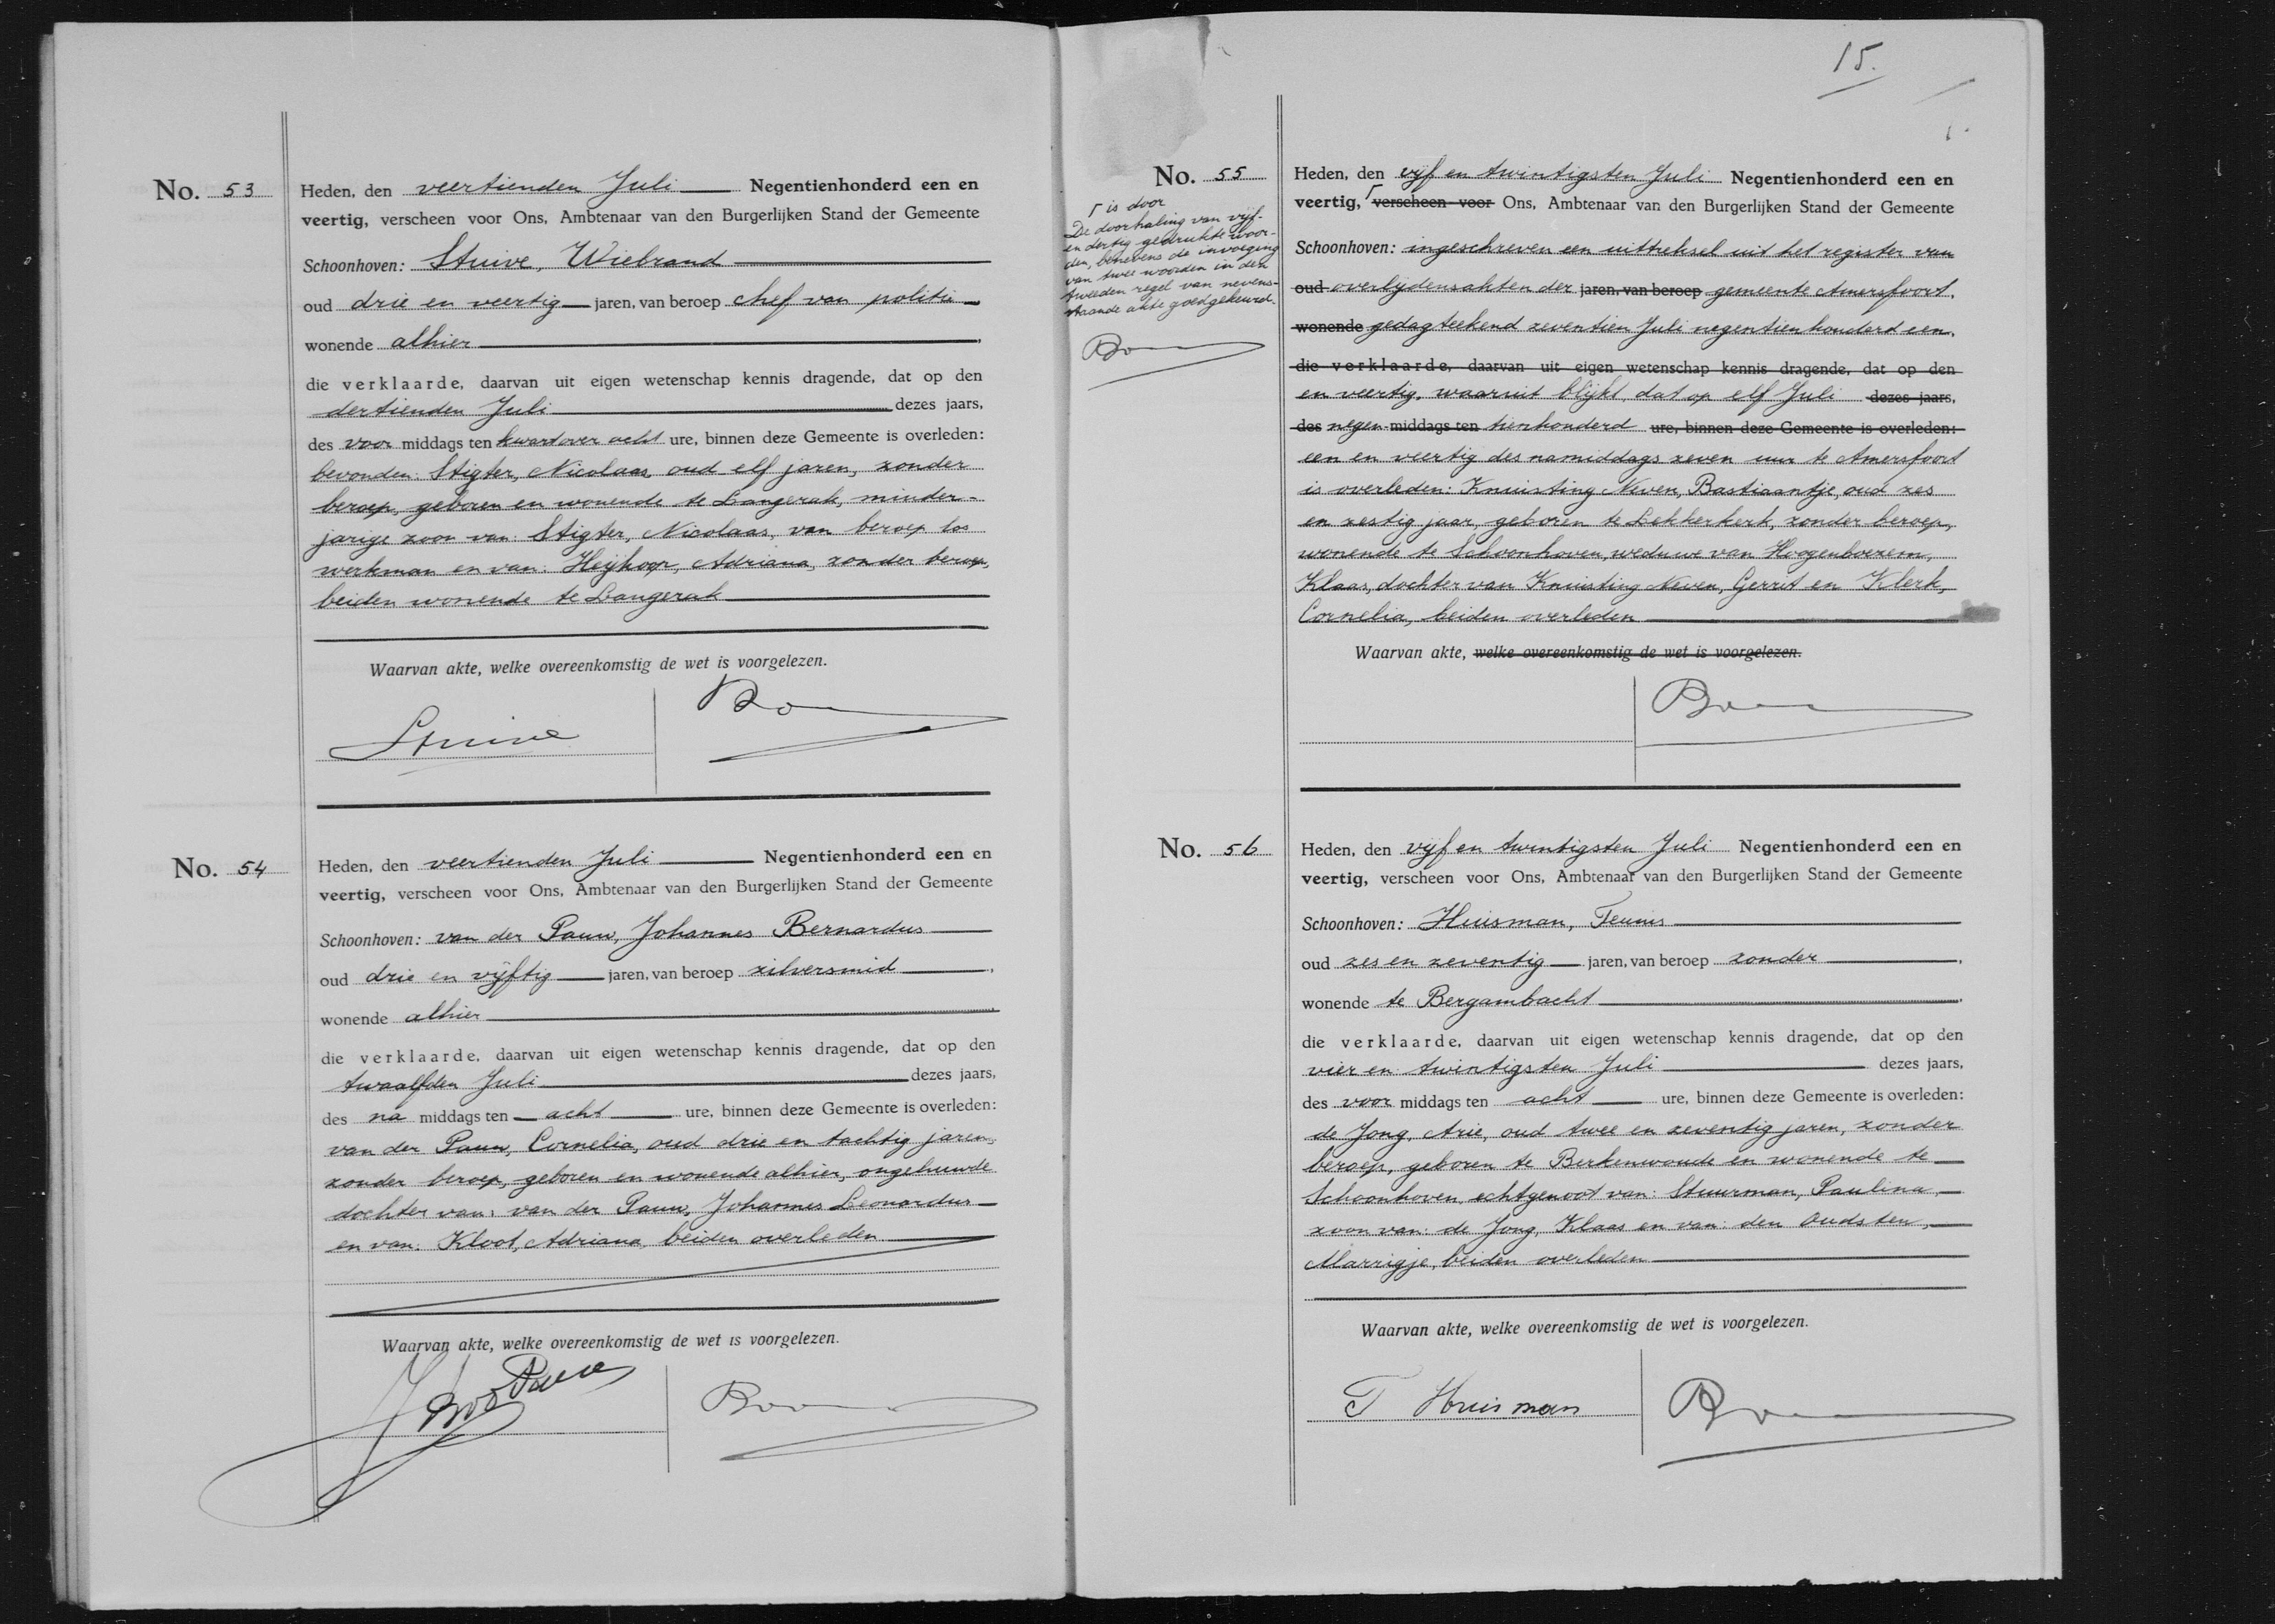 No. 53
Heden, den veertienden Juli Negentienhonderd een en
veertig, verscheen voor Ons, Ambtenaar van den Burgerlijken Stand der Gemeente
Schoonhoven: Stuive, Wiebrand
oud drie en veertig jaren, van beroep chef van politie
wonende alhier
die verklaarde, daarvan uit eigen wetenschap kennis dragende, dat op den
dertienden Juli dezes jaars,
des voor middags ten kwart over acht ure, binnen deze Gemeente is overleden:
bevonden: Stigter, Nicolaas, oud elf jaren, zonder
beroep, geboren en wonende te Langerak, minder-
jarige zoon van: Stigter, Nicolaas, van beroep los
werkman en van: Heijkoop, Adriana, zonder beroep,
beiden wonende te Langerak
Waarvan akte, welke overeenkomstig de wet is voorgelezen.
Stuive
No. 54
Heden, den veertienden Juli Negentienhonderd een en
veertig, verscheen voor Ons, Ambtenaar van den Burgerlijken Stand der Gemeente
Schoonhoven: van der Pauw, Johannes Bernardus
oud drie en vijftig jaren, van beroep zilversmid
wonende alhier
die verklaarde, daarvan uit eigen wetenschap kennis dragende, dat op den
twaalfden Juli dezes jaars,
des na middags ten acht ure, binnen deze Gemeente is overleden:
van der Pauw, Cornelia, oud drie en tachtig jaren,
zonder beroep, geboren en wonende alhier, ongehuwde
dochter van: van der Pauw, Johannes Leonardus
en van: Kloot, Adriana, beiden overleden
Waarvan akte, welke overeenkomstig de wet is voorgelezen.
15.
No. 55
┌ is door
De doorhaling van vijf-
en dertig gedrukte woor-
den, benevens de invoeging
van twee woorden in den
tweeden regel van nevens-
staande akte goedgekeurd.
Heden, den vijf en twintigsten Juli Negentienhonderd een en
veertig, ┌ verscheen voor Ons, Ambtenaar van den Burgerlijken Stand der Gemeente
Schoonhoven: ingeschreven een uittreksel uit het register van
oud overlijdensakten der jaren, van beroep gemeente Amersfoort,
wonende gedagteekend zeventien Juli negentienhonderd een
die verklaarde, daarvan uit eigen wetenschap kennis dragende, dat op den
en veertig, waaruit blijkt, dat op elf Juli dezes jaars,
des negen middags ten tienhonderd ure, binnen deze Gemeente is overleden:
een en veertig des namiddags zeven uur te Amersfoort
is overleden: Knuisting Neven, Bastiaantje, oud zes
en zestig jaar, geboren te Lekkerkerk, zonder beroep,
wonende te Schoonhoven, weduwe van Hoogenboezem,
Klaas, dochter van Knuisting Neven, Gerrit en Klerk,
Cornelia, beiden overleden
Waarvan akte, welke overeenkomstig de wet is voorgelezen.
No. 56
Heden, den vijf en twintigsten Juli Negentienhonderd een en
veertig, verscheen voor Ons, Ambtenaar van den Burgerlijken Stand der Gemeente
Schoonhoven: Huisman, Teunis
oud zes en zeventig jaren, van beroep zonder
wonende te Bergambacht
die verklaarde, daarvan uit eigen wetenschap kennis dragende, dat op den
vier en twintigsten Juli dezes jaars,
des voor middags ten acht ure, binnen deze Gemeente is overleden:
de Jong, Arie, oud twee en zeventig jaren, zonder
beroep, geboren te Berkenwoude en wonende te
Schoonhoven, echtgenoot van: Stuurman, Paulina,
zoon van: de Jong, Klaas en van: den Oudsten,
Marrigje, beiden overleden
Waarvan akte, welke overeenkomstig de wet is voorgelezen.
T Huisman